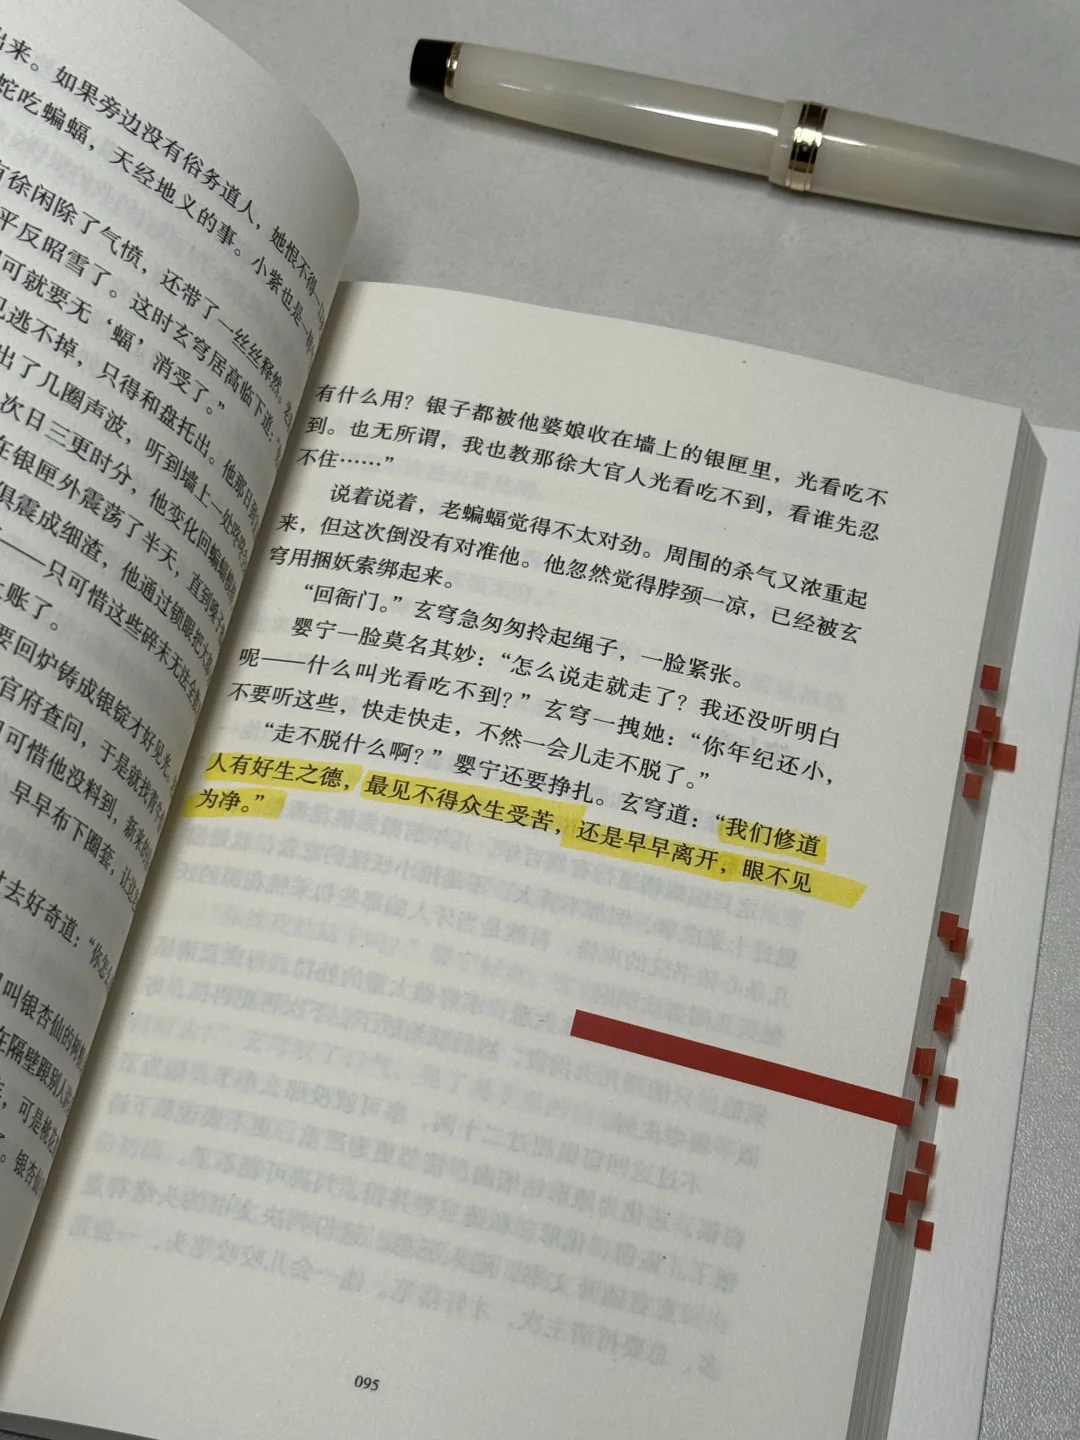 出来。如果旁边没有俗务道人，她恨不得一口
蛇吃蝙蝠，天经地义的事。小紫也是一
有徐闲除了气愤，还带了一丝丝释然。
平反昭雪了。这时玄穹居高临下道：
可就要无‘蝠’消受了。”
见逃不掉，只得和盘托出。他那日到
出了几圈声波，听到墙上一处
次日三更时分，他变化回蝙蝠
在银匣外震荡了半天，直到
俱震成细渣，他通过锁眼把
——只可惜这些碎末无法
账了。
要回炉铸成银锭才好见光。
官府查问，于是就找
可惜他没料到，新来的
早早布下圈套，让这
过去好奇道：“你怎么
叫银杏仙的树精
在隔壁跟别人
，可是桃花
了。银杏仙
有什么用？银子都被他婆娘收在墙上的银匣里，光看吃不
到。也无所谓，我也教那徐大官人光看吃不到，看谁先忍
不住……”
说着说着，老蝙蝠觉得不太对劲。周围的杀气又浓重起
来，但这次倒没有对准他。他忽然觉得脖颈一凉，已经被玄
穹用捆妖索绑起来。
“回衙门。”玄穹急匆匆拎起绳子，一脸紧张。
婴宁一脸莫名其妙：“怎么说走就走了？我还没听明白
呢——什么叫光看吃不到？”玄穹一拽她：“你年纪还小，
不要听这些，快走快走，不然一会儿走不脱了。”
“走不脱什么啊？”婴宁还要挣扎。玄穹道：“我们修道
人有好生之德，最见不得众生受苦，还是早早离开，眼不见
为净。”
095